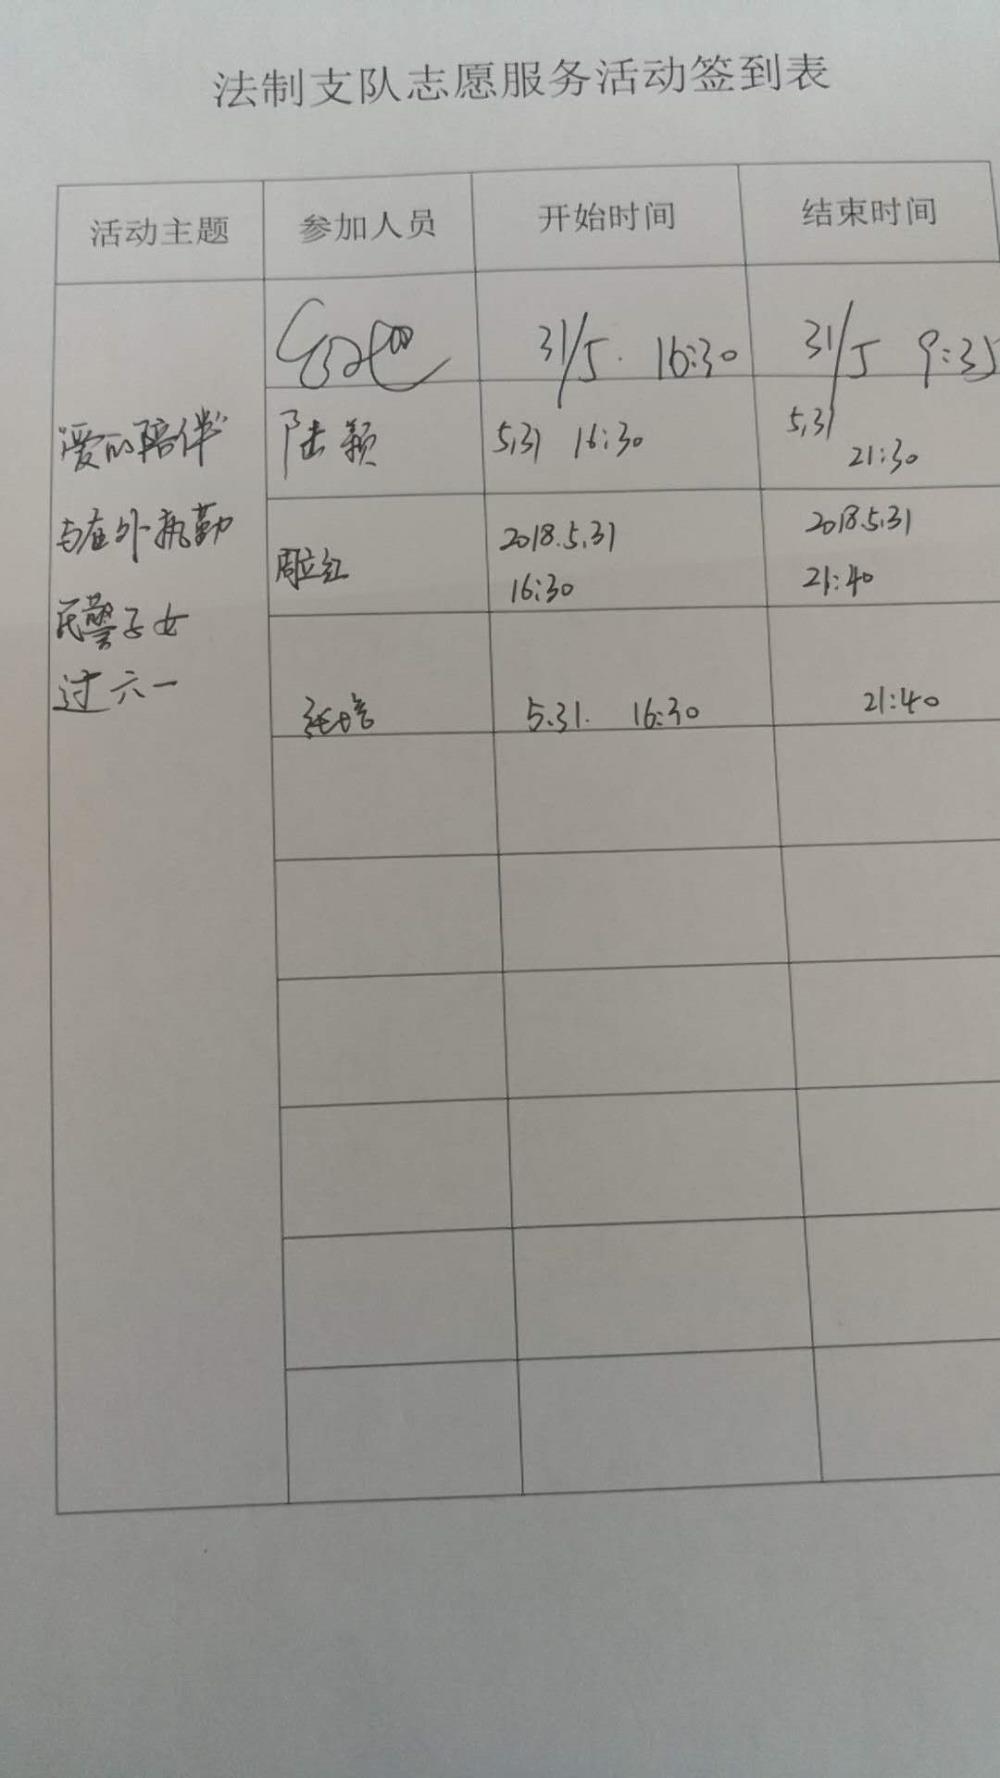 法制支队志愿服务活动签到表
活动主题 参加人员 开始时间 结束时间
31/5. 16:30 31/5 9:35
"爱的陪伴" 陆颖 5.31 16:30 5.31
21:30
与在外执勤 周立红 2018.5.31 2018.5.31
16:30 21:40
民警子女
过六一 5.31. 16:30 21:40